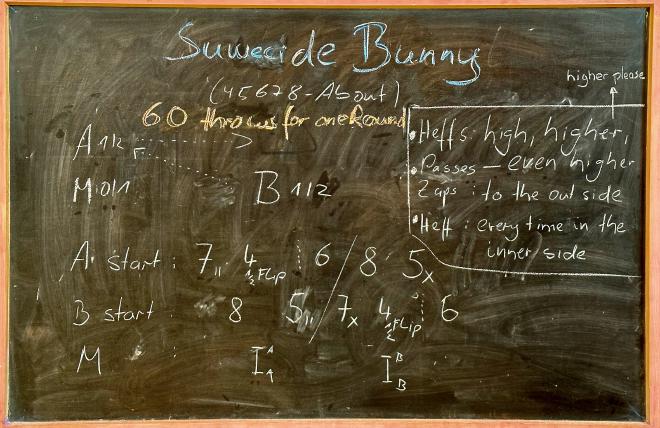 Suwecide Bunny
(45678-About)
higher please
60 throws for one Round
A 1|2
M 0|1
B 1|2
• Heffs: high, higher,
• Passes — even higher
Zaps: to the out side
• Heff: every time in the
inner side
A start: 7|| 4 ½ Flip 6 / 8 5x
B start: 8 5|| / 7x 4 ½ Flip 6
M : I A A I B B